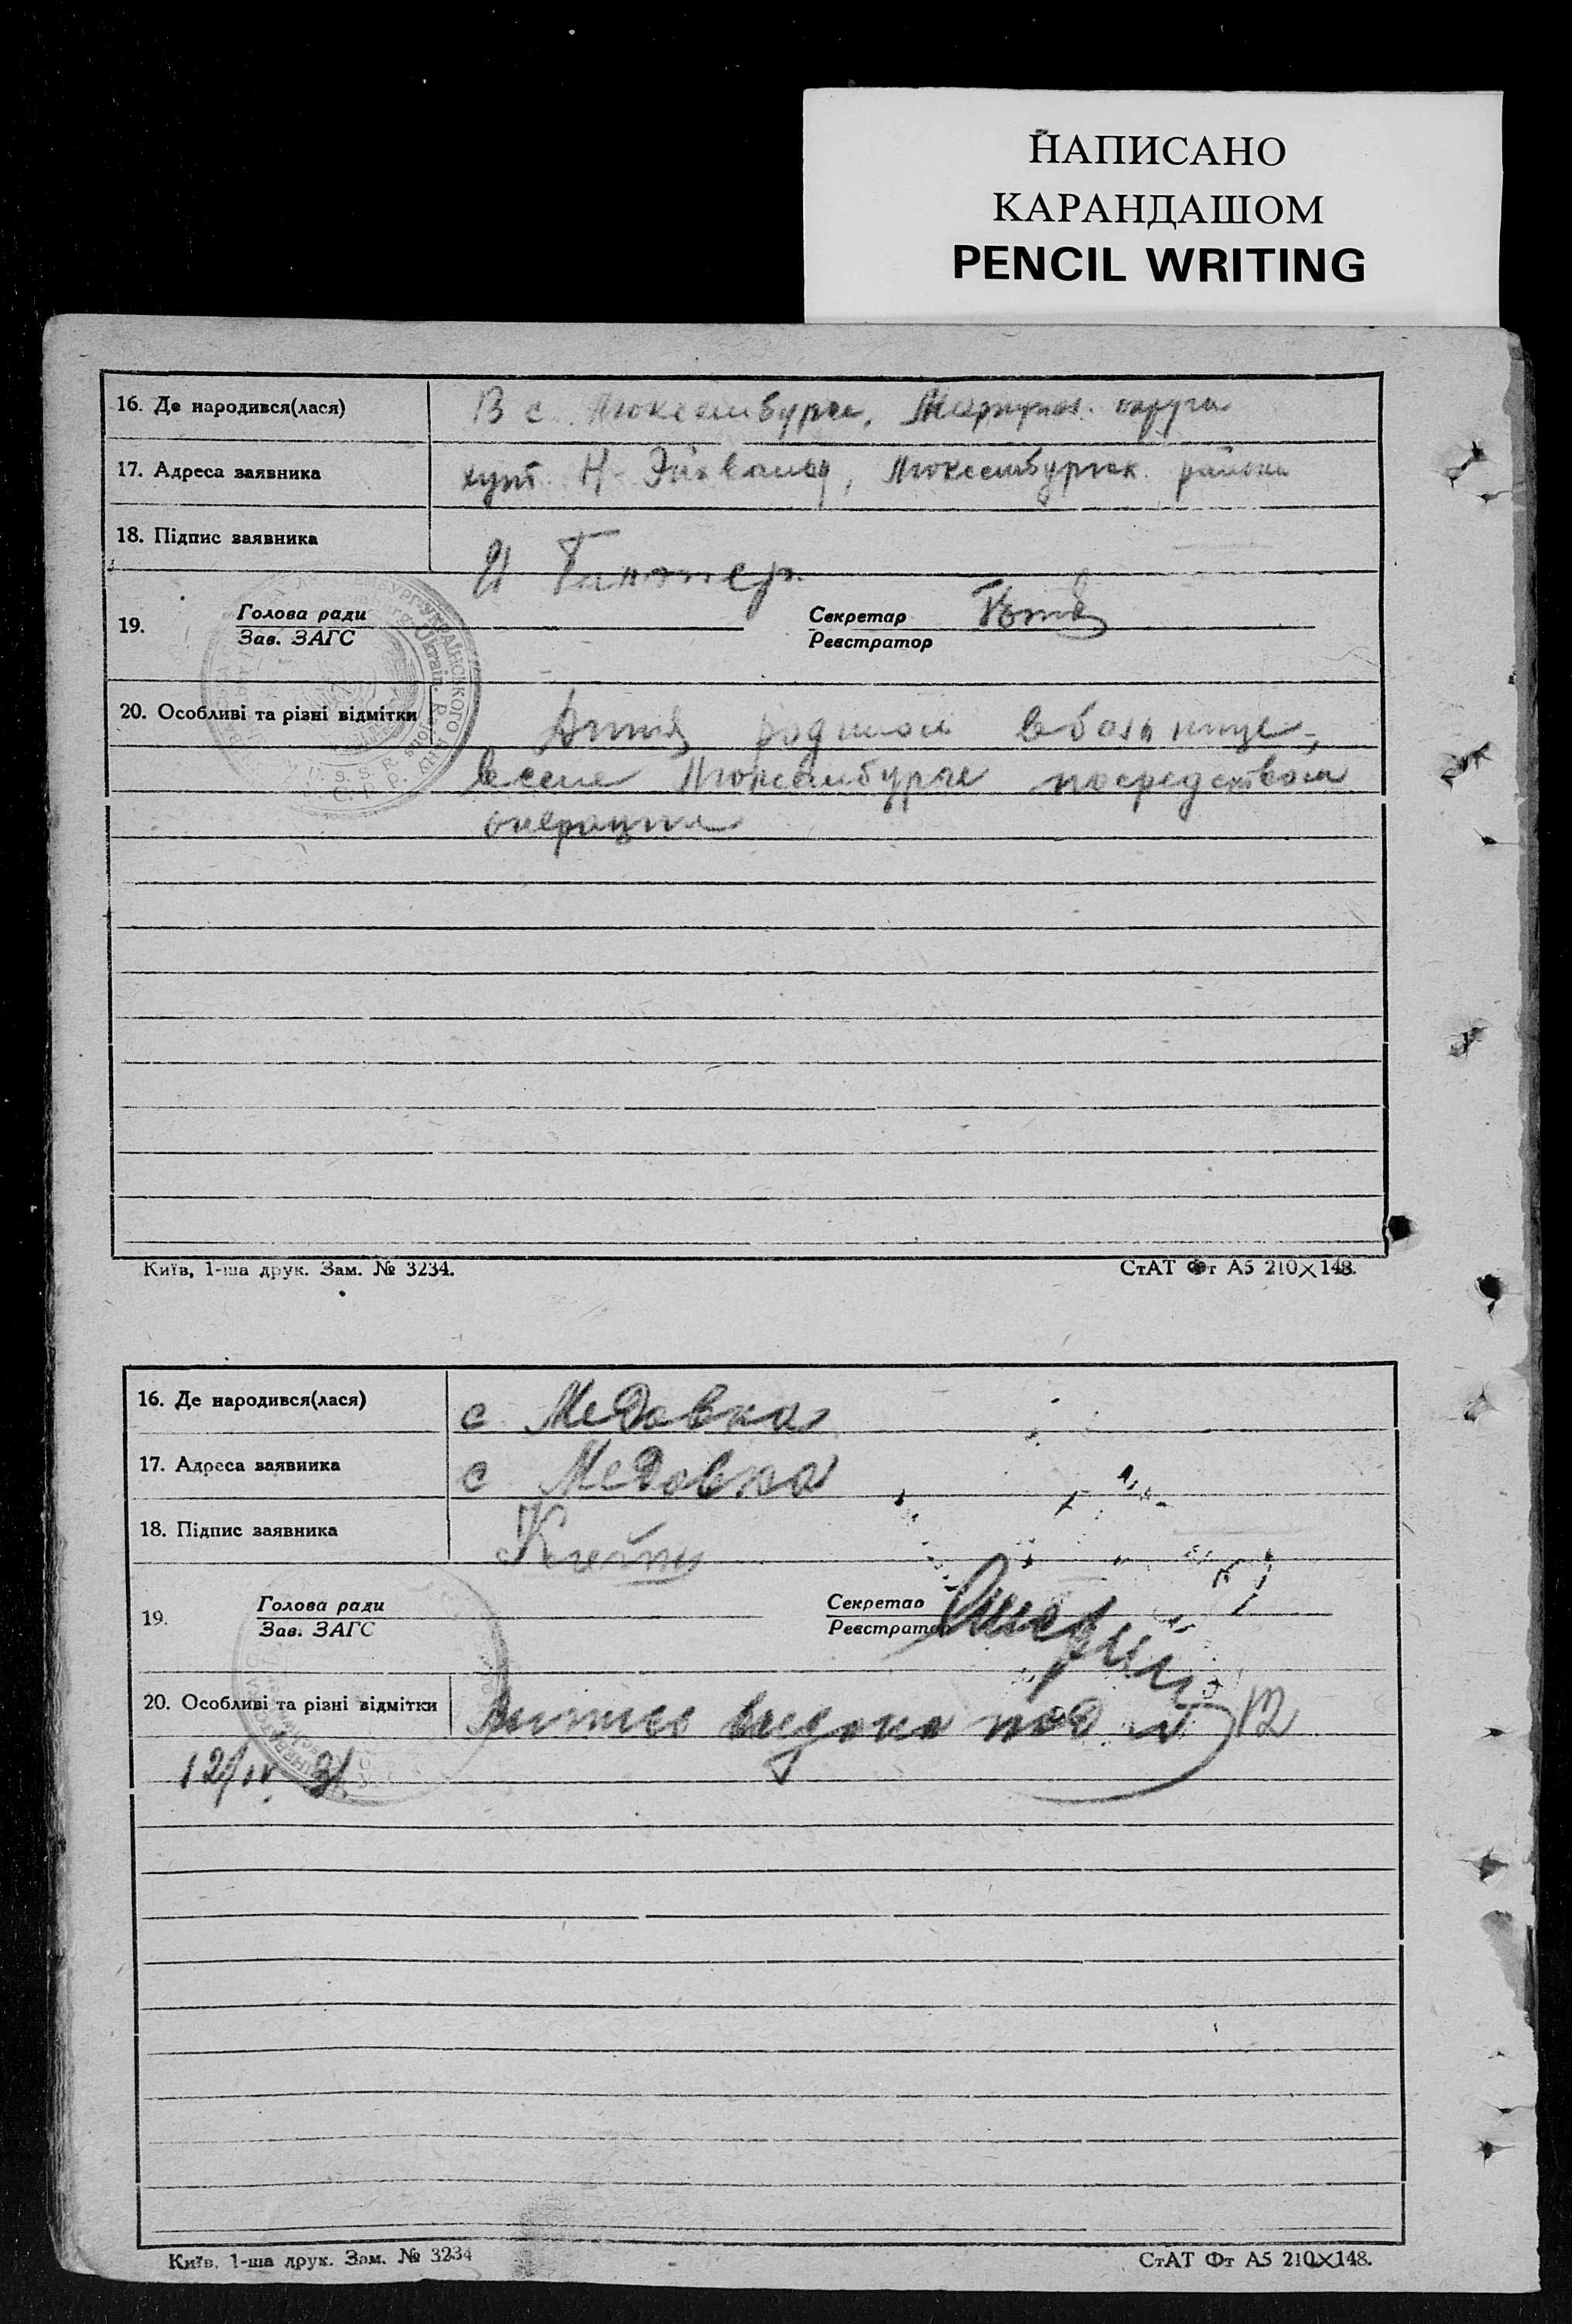 НАПИСАНО
КАРАНДАШОМ
PENCIL WRITING
16. Де народився(лася) В с. Люксембурге, Мариупол. округа
17. Адреса заявника хут. Н-Эйхвальд, Люксембургск. района
18. Підпис заявника И Гинтер
19. Голова ради Секретар
Зав. ЗАГС Реєстратор
20. Особливі та різні відмітки Дитя родилось в больнице,
в селе Люксембурге посредством
операции
Київ, 1-ша друк. Зам. № 3234. СтАТ Фт А5 210×148.
16. Де народився(лася) с Медовка
17. Адреса заявника с Медовка
18. Підпис заявника
19. Голова ради Секретар
Зав. ЗАГС Реєстратор
20. Особливі та різні відмітки выдана под № 12
12/IV 31
Київ, 1-ша друк. Зам. № 3234 СтАТ Фт А5 210×148.